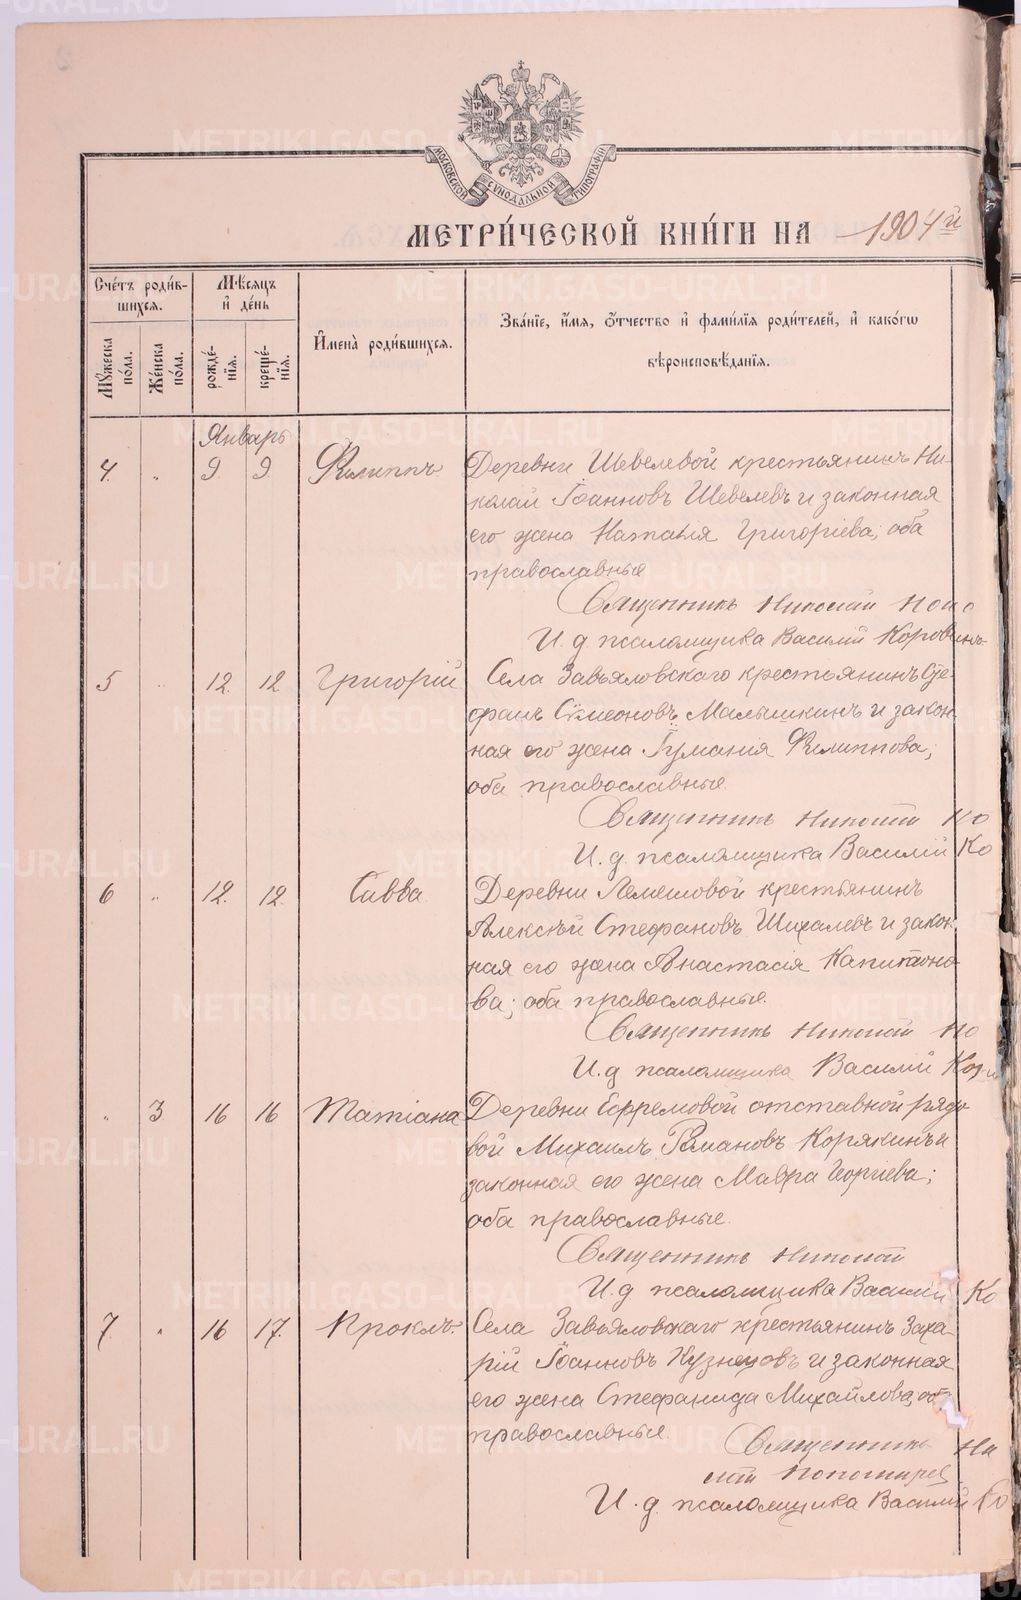 МОСКОВСКОЙ СУНОДАЛЬНОЙ ТИПОГРАФІИ
МЕТРИ́ЧЕСКОЙ КНИ́ГИ НА 1904 й
Сче́тъ роди́в-
шихся.
Мѣ́сяцъ
и҆ де́нь
И҆мена̀ роди́вшихся.
Зва́нїе, и҆́мя, ѻ҆́тчество и҆ фами́лїя роди́телей, и҆ како́гѡ
вѣроисповѣ́данїя.
Мꙋ́жеска по́ла.
Же́нска по́ла.
рожде́-нїя.
креще́-нїя.
Январь
4. " 9 9. Филиппъ. Деревни Шевелевой крестьянинъ Ни-
колай Іоанновъ Шевелевъ и законная
его жена Наталья Григоріева; оба
православные
Священникъ Николай
И. д. псаломщика Василій Коровинъ
5 " 12. 12 Григорій Села Завьяловскаго крестьянинъ Сте-
фанъ Сѵмеоновъ Малышкинъ и закон-
ная его жена Филиппова;
оба православные
Священникъ Николай
И. д. псаломщика Василій Ко
6 " 12. 12. Савва Деревни крестьянинъ
Алексѣй Стефановъ Шихалевъ и закон-
ная его жена Анастасія Капитоно-
ва; оба православные.
Священникъ Николай
И. д псаломщика Василій
" 3 16 16 Татіана Деревни Ефремовой отставной рядо-
вой Михаилъ Романовъ Корякинъ и
законная его жена Мавра Георгіева;
оба православные.
Священникъ Николай
И. д псаломщика Василій Ко
7 " 16 17. Проклъ. Села Завьяловскаго крестьянинъ Заха-
рій Іоанновъ Кузнецовъ и законная
его жена Стефанида Михайлова, об
православные.
Священникъ Ни
И. д псаломщика Василій Ко
METRIKI.GASO-URAL.RU